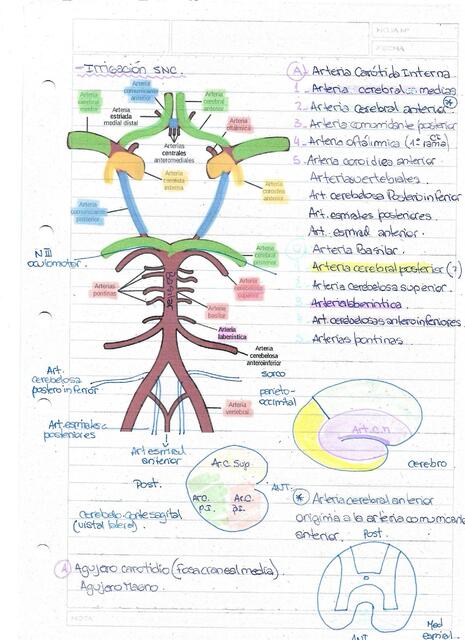 HOJA Nº
FECHA
-Irrigación SNC.
Arteria cerebral media
Arteria comunicante anterior
Arteria cerebral anterior
Arteria estriada medial distal
Arteria oftálmica
Arterias centrales anteromediales
Arteria carótida interna
Arteria coroidea anterior
Arteria comunicante posterior
N III
oculomotor.
Arteria cerebral posterior
Arterias pontinas
Arteria cerebelosa superior
Basilar
Arteria basilar
Arteria laberíntica
Arteria cerebelosa anteroinferior
Art.
cerebelosa
postero inferior
Art. espinales
posteriores
Arteria vertebral
Art espinal
anterior
A Arteria Carótida Interna
1 Arteria cerebral medias
2 Arteria cerebral anterior *
3 Arteria comunicante posterior
4 Arteria oftálmica (1º rama)
5. Arteria coroidea anterior
Arterias vertebrales.
Art cerebelosa Postero inferior
Art. espinales posteriores.
Art. espinal anterior.
Arteria Basilar.
Arteria cerebral posterior (?)
Arteria cerebelosa superior.
Arteria laberintica
Art. cerebelosas antero inferiores
Arterias pontinas
surco
parieto-
occipital
cerebro
Ar.C. Sup.
Post.
ANT.
Ar.C.
Ar.C.
cerebelo corte sagital
(vista lateral).
* Arteria cerebral anterior
origina a la arteria comunicante
anterior.
Post.
A Agujero carotídio (fosa craneal media).
Agujero Magno.
Med
espinal
ANT
NOTA